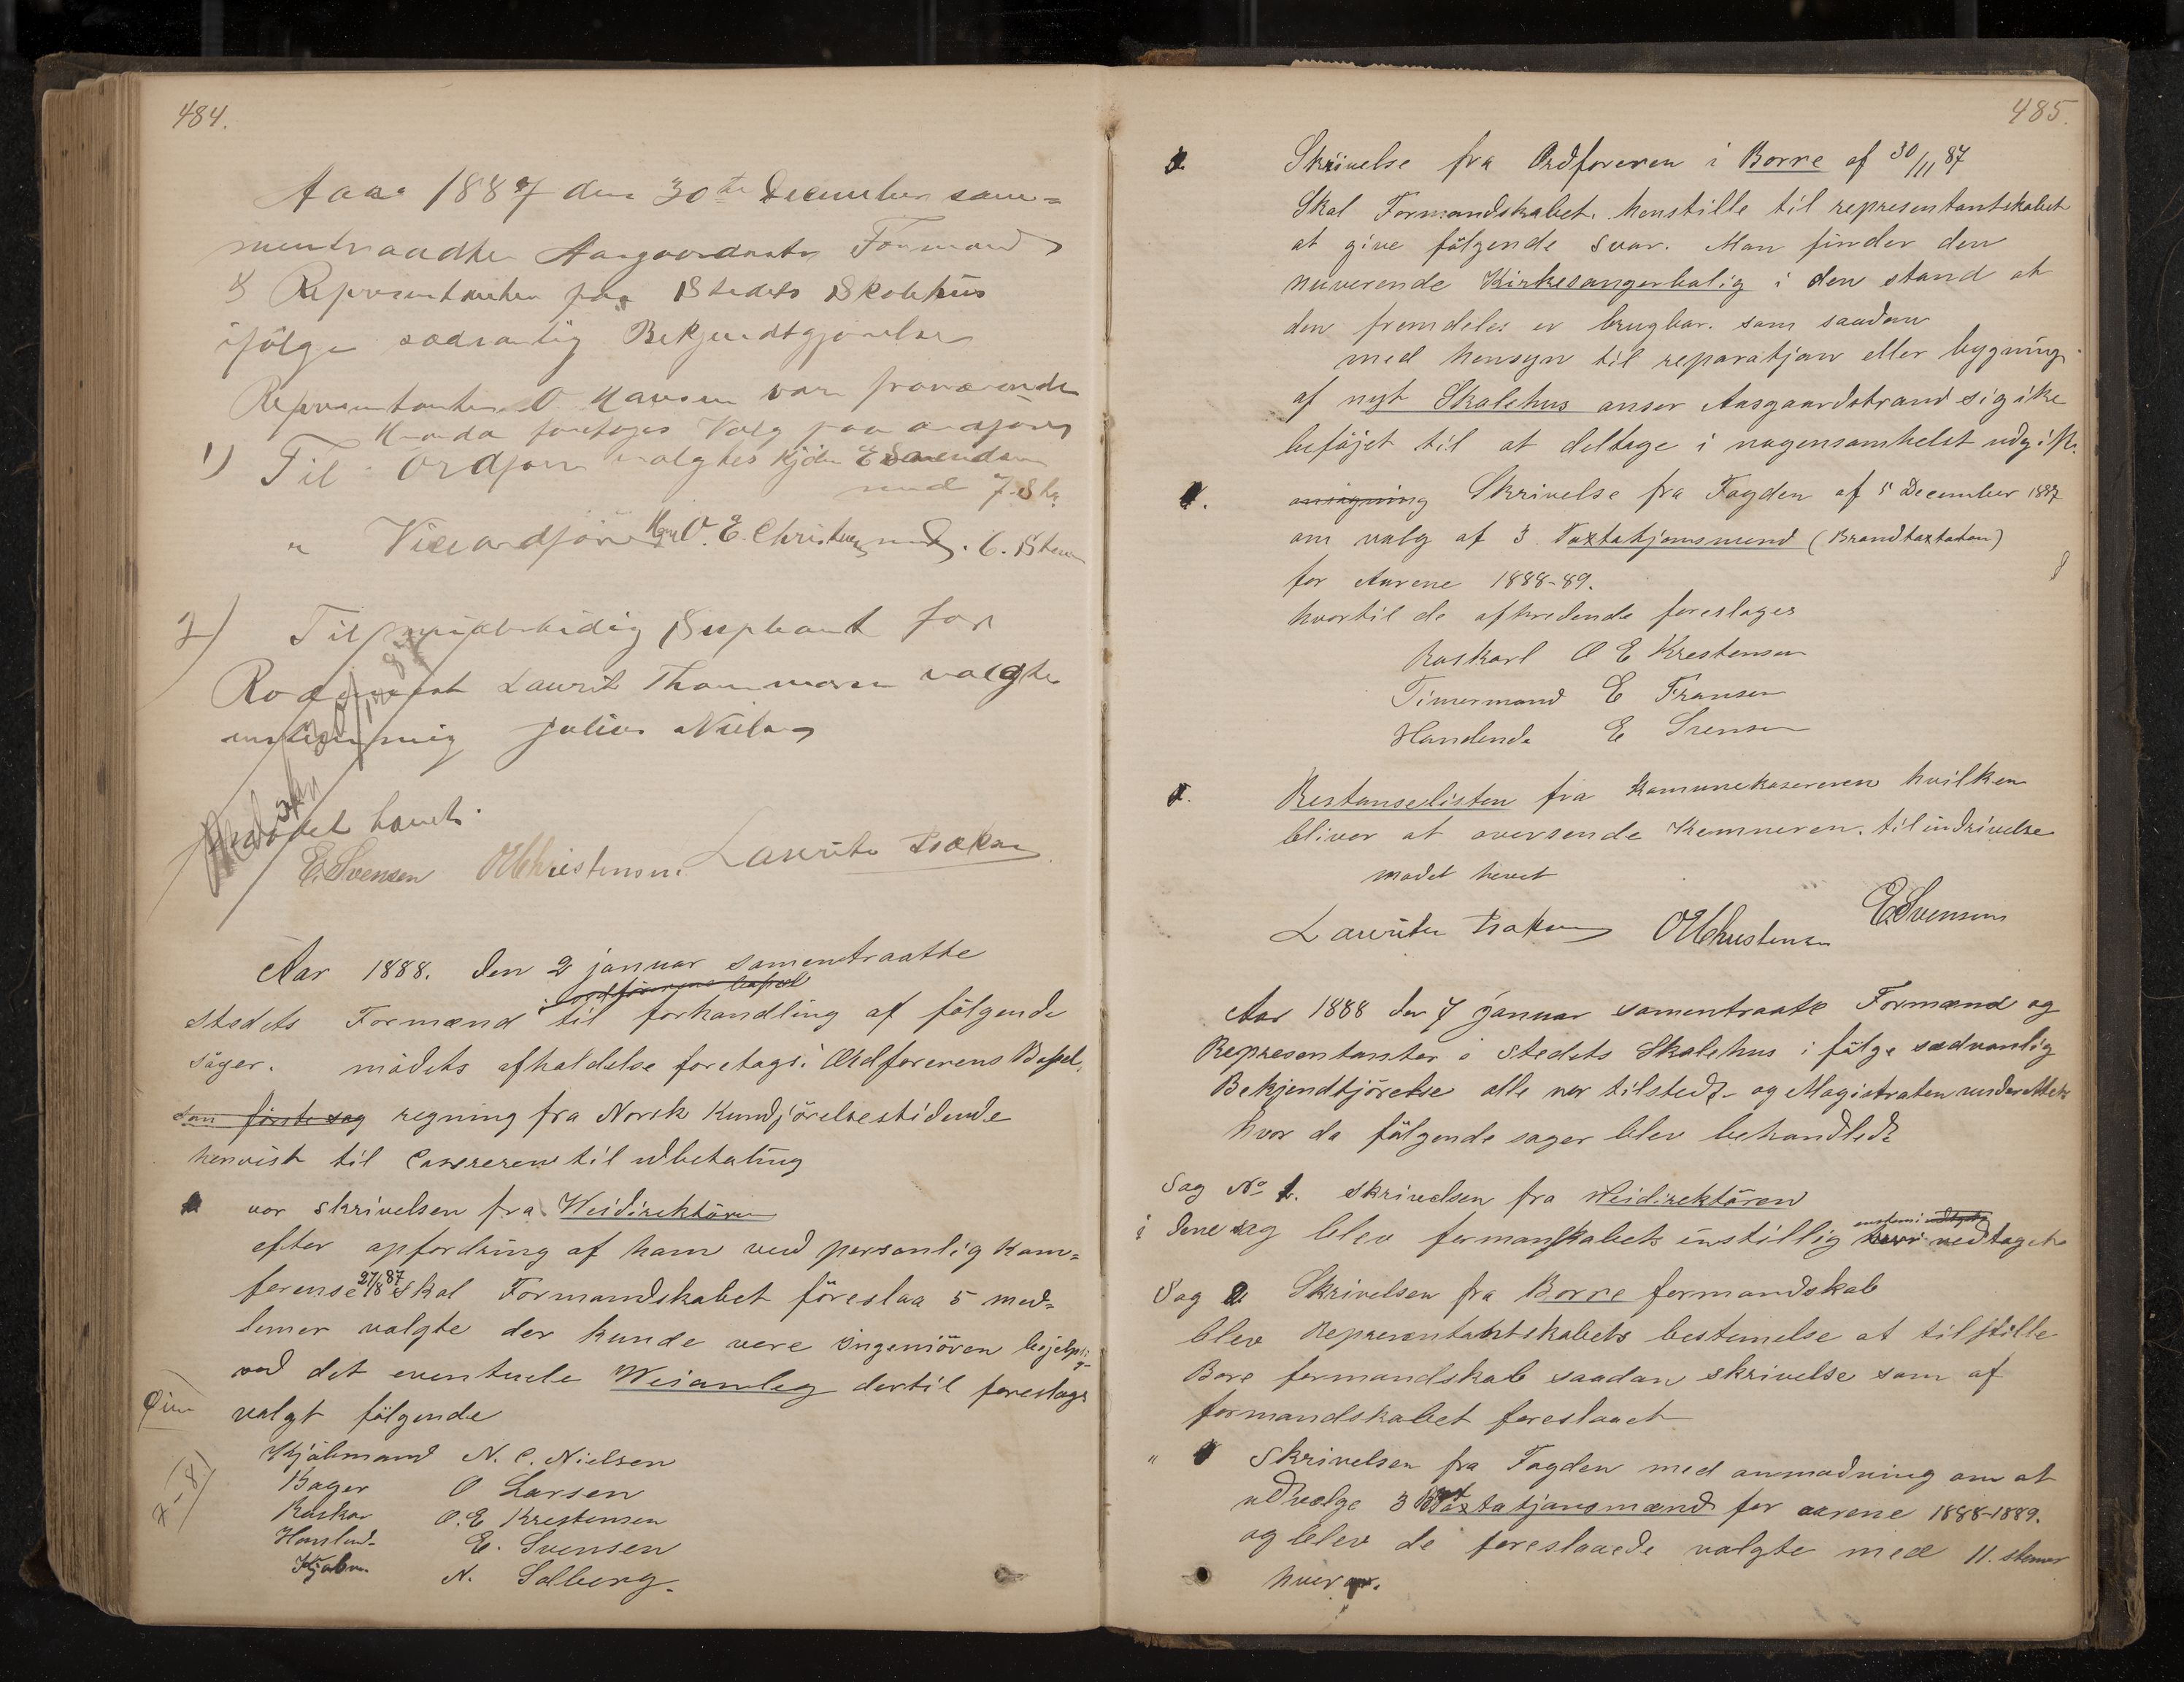 484.
Aar 1887 den 30te December sam=
mentraadte Aasgaardsstr. Formænd
& Repræsentanter paa Stedets Skolehus
ifölge sædvanlig Bekjendtgjörelse
Repræsentanten O Hansen var fraværende
foretoges Valg paa ordförer
1) Til Ordförer valgtes E Svendsen
med 7 St.
" Viceordförer O. E. Christensen med 6. Stem
2) Til midlertidig Supleant for
Rodemest Laurits Thommesen valgtes
enstemmig Julius Nielsen
Mödet hævet.
E. Svensen O E Christensen Laurits Isaksen
Aar 1888. den 2 januar samentraatte
i ordförerens bopæl
stedets Formænd til forhandling af fölgende
sager. mödets afholdelse foretages i Ordforerens Bopel.
den förste sag regning fra Norsk Kundjörelsestidende
henvist til Casereren til udbetaling
vor skrivelsen fra Weidirektören
efter opfordring af ham ved personlig kon=
ferense 27/8 87 skal Formandskabet föreslaa 5 med=
lemer valgte der kunde vere ingeniören behjelpelig
ved det eventuele Weianleg dertil foreslags
valgt fölgende
Kjöbmand N. C. Nielsen
Bager O Larsen
Baskar O. E Krestensen
Handlend. E. Svensen
Kjöbm. N. Solberg.
485.
Skrivelse fra Ordforeren i Borre af 30/11 87
Skal Formandskabet henstille til representantskabet
at give fölgende svar. Man finder den
nuverende Kirkesangerbolig i den stand at
den fremdeles er brugbar som saadan
med hensyn til reparatjon eller bygning
af nyt Skolehus anser Aasgaardstrand sig ike
beföjet til at deltage i nogensomhelst udgift.
Skrivelse fra Fogden af 5 December 1887
om valg af 3 Taxtatjonsmend (Brandtaxtation)
for Aarene 1888-89.
hvortil de aftredende foreslages
Baskarl O E Krestensen
Timermand E Fransen
Handlende E Svensen
Restanselisten fra komunekasereren hvilken
bliver at oversende Kemneren til indrivelse
mödet hevet
Laurits Isaksen O E Christensen E. Svensen
Aar 1888 den 7 januar samentraate Formænd og
Representanter i stedets Skolehus i fölge sædvanlig
Bekjendtjörelse alle var tilstede og Magistraten underettet
hvor da fölgende sager blev behandlede
Sag No 1. skrivelsen fra Weidirektören
i dene sag blev formanskabets instillig enstemi vedtaget
Sag 2 Skrivelsen fra Borre formandskab
blev Representantskabets bestemelse at tilstille
Bore formandskab saadan skrivelse som af
formandskabet foreslaaet
" Skrivelsen fra Fogden med anmodning om at
udvælge 3 Taxtatjonsmænd for aarene 1888-1889.
og blev de foreslaaede valgte med 11. stemer
hver.